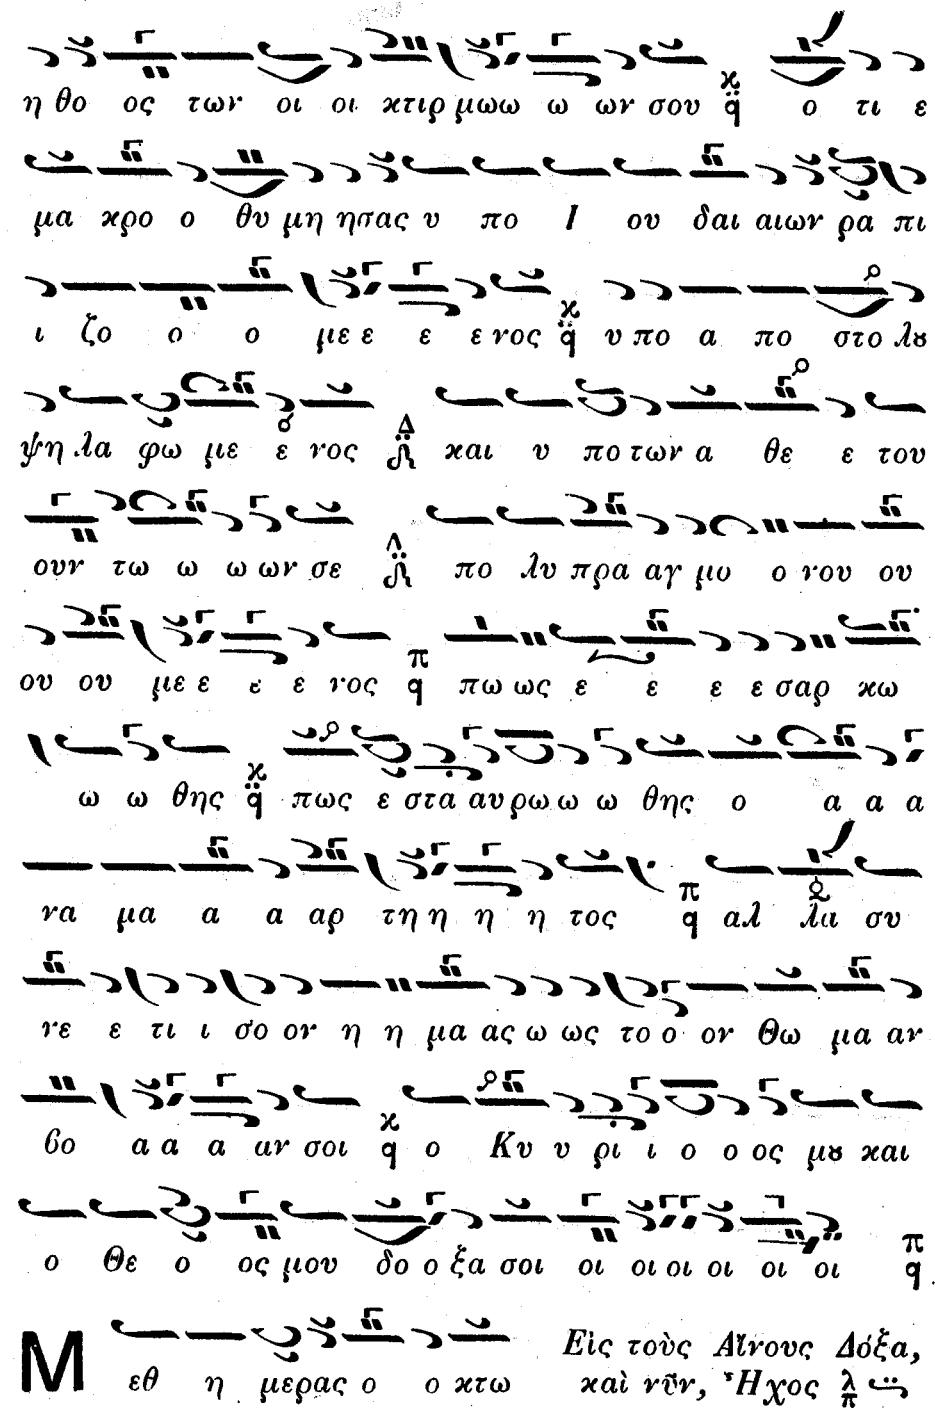 η θο ος των οι οι κτιρ μωω ω ων σου ϰ q̈ ο τι ε
μα κρο ο θυ μη ησας υ πο Ι ου δαι αιων ρα πι
ι ζο ο ο με ε ε ε νος ϰ q̈ υ πο α πο στο λȣ
ψη λα φω με ε νος Δ και υ πο των α θε ε του
ουν τω ω ω ων σε Δ πο λυ πρα αγ μο ο νου ου
ου ου με ε ε ε νος π q πω ως ε ε ε ε σαρ κω
ω ω θης ϰ q̈ πως ε στα αυ ρω ω ω θης ο α α α
να μα α α αρ τη η η η τος π q αλ λα συ
νε ε τι ι σο ον η η μα ας ω ως το ο ον Θω μα αν
βο α α α αν σοι ϰ q ο Κυ υ ρι ι ο ο ος μȣ και
ο Θε ο ος μου δο ο ξα σοι οι οι οι οι οι οι π q
Μ εθ η μερας ο ο κτω
Εἰς τοὺς Αἴνους Δόξα,
καὶ νῦν, Ἦχος λ π